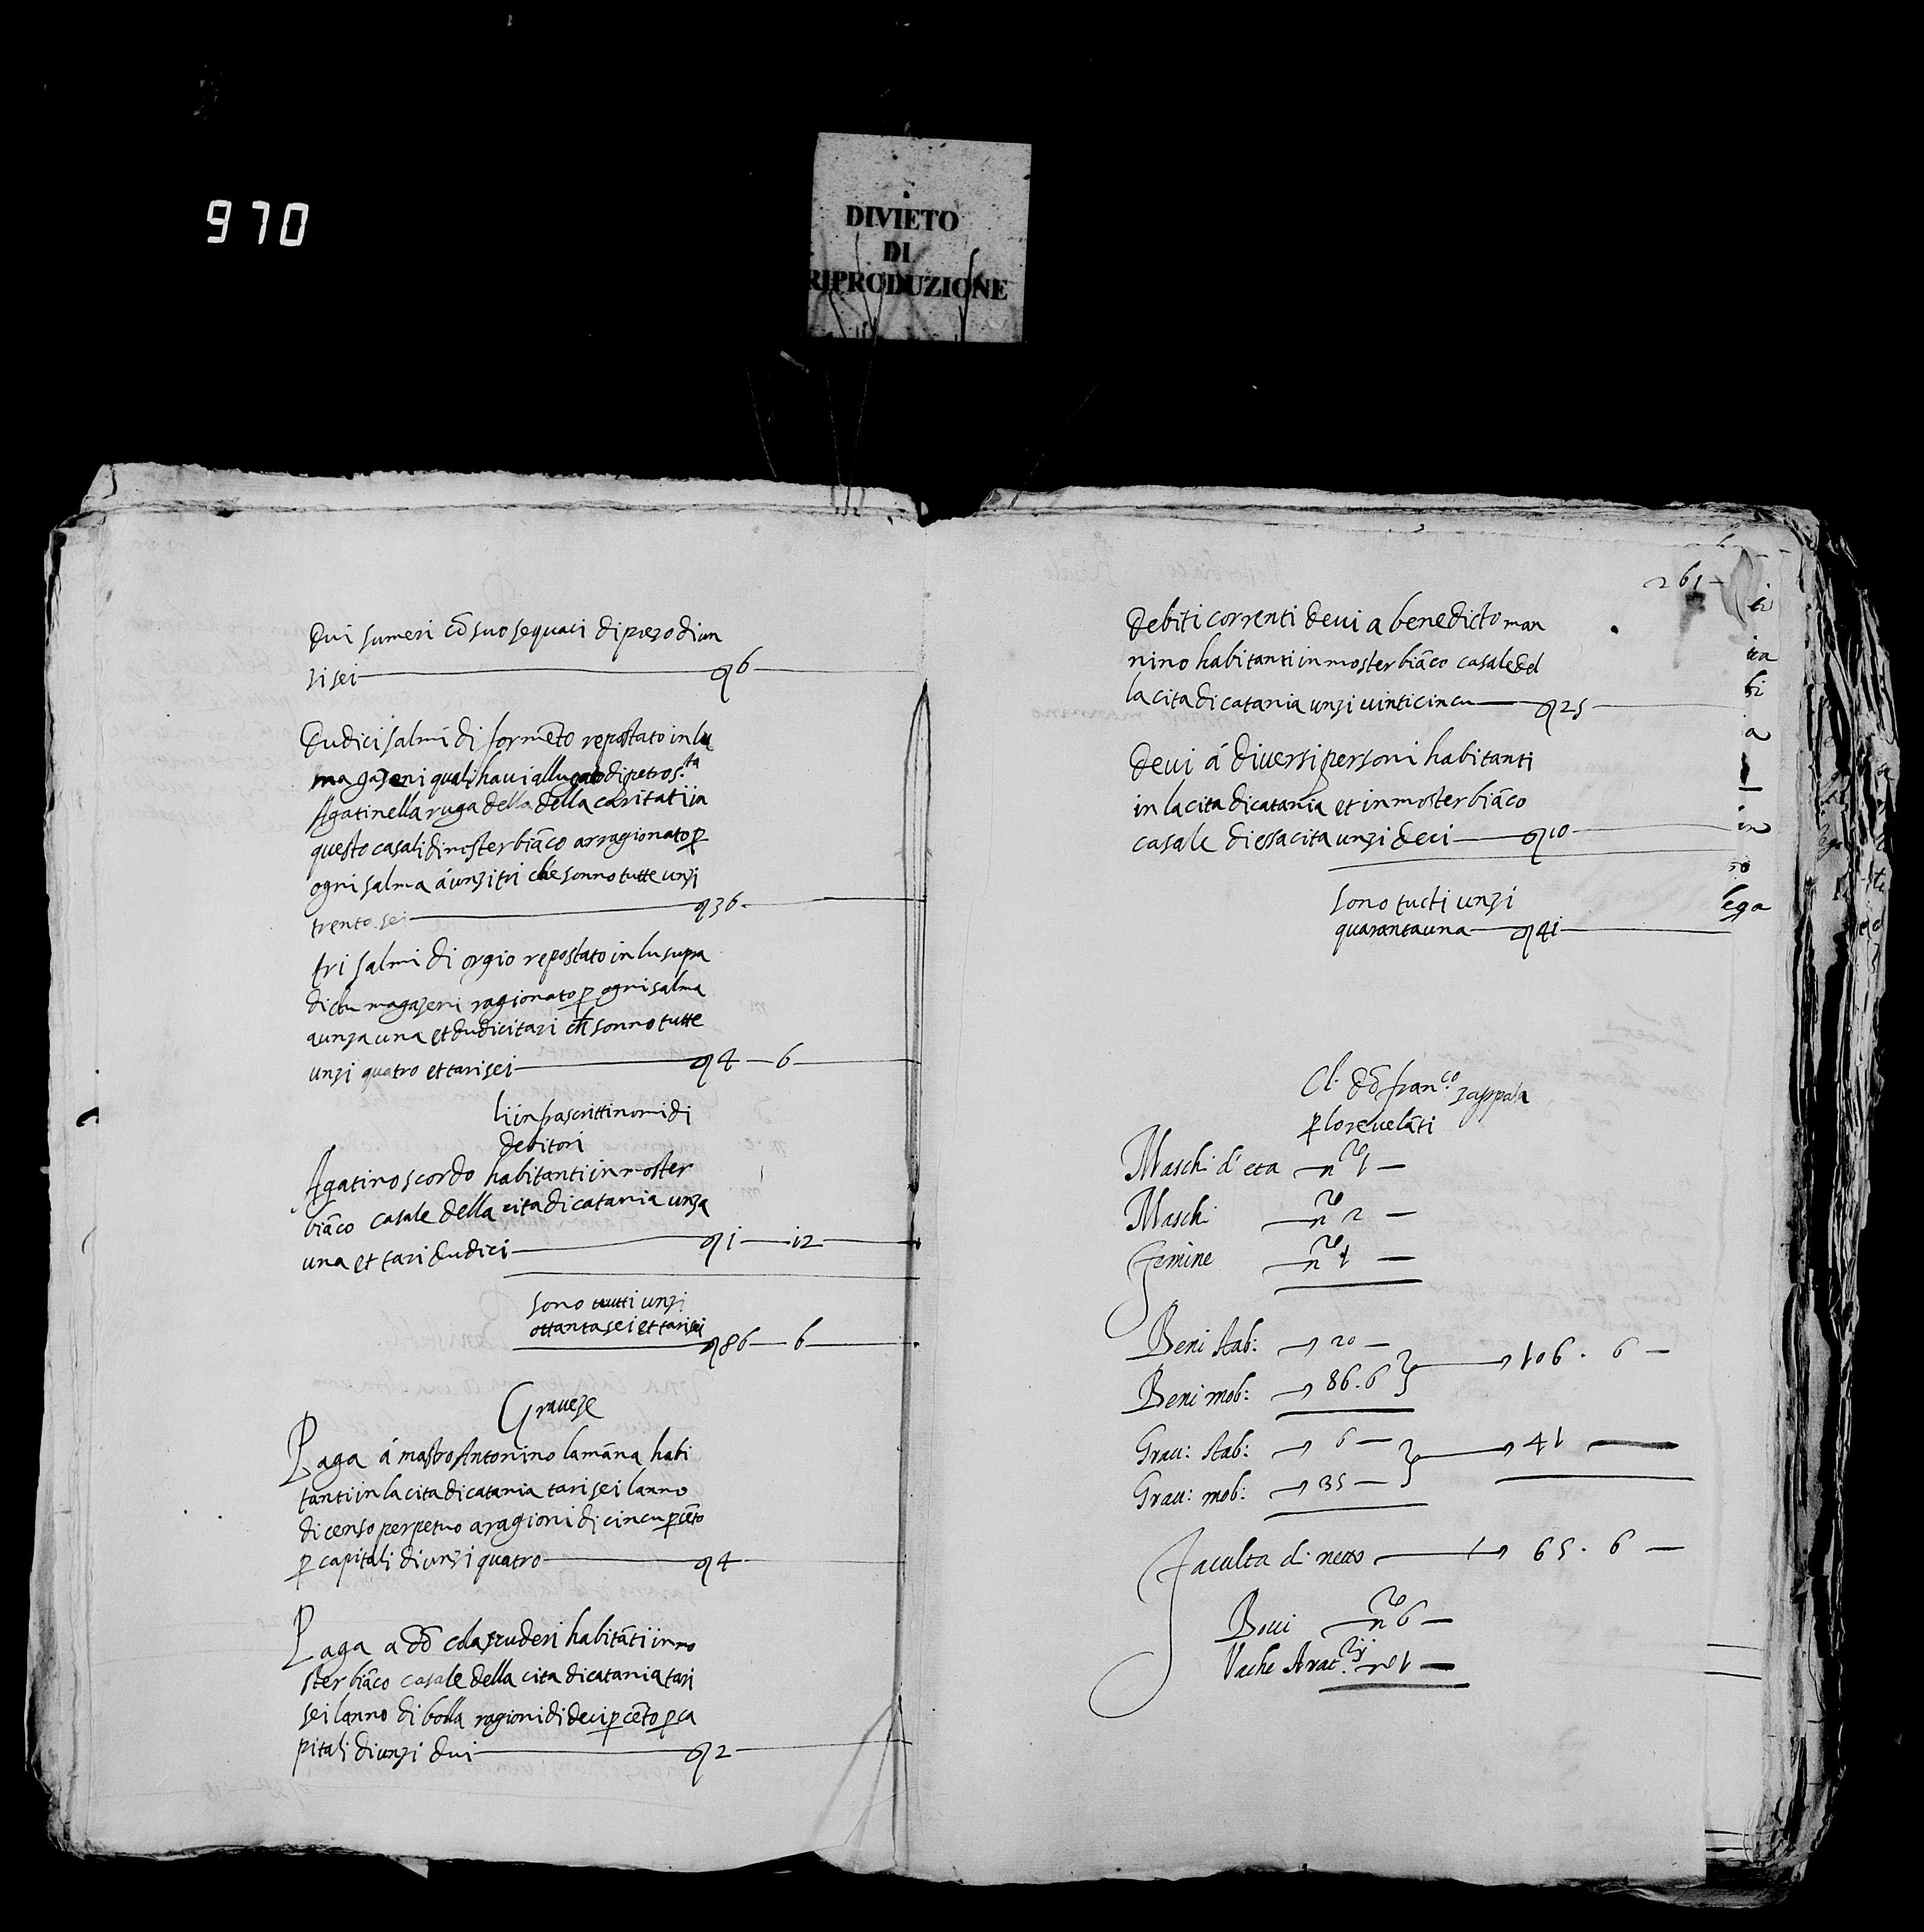 970
DIVIETO
DI
RIPRODUZIONE
Dui sumeri cō suo sequaci di prezo di un
zi sei 6
Dudici salmi di formēto repostato in lu
magazeni quali havi allugato di petro s.ta
Agatinella ruga della della caritati in
questo casali di mosterbiāco arragionato p
ogni salma á unzi tri che sonno tutte unzi
trento sei 36
tri salmi di orgio repostato in lu supra
dictu magazeni ragionato p ogni salma
a unza una et dudici tari ch sonno tutte
unzi quatro et tari sei 4 6
li infrascritti nomi di
debitori
Agatino scordo habitanti in moster
biāco casale della cita di catania unza
una et tari dudici 1 12
sono tutti unzi
ottanta sei et tari sei 86 6
Graveze
Paga á mastro Antonino lamāna habi
tanti in la cita di catania tari sei lanno
di censo perpetuo a ragioni di cincu p cēto
p capitali di unzi quatro 4
Paga a dō cola habitāti in mo
sterbiāco casale della cita di catania tari
sei lanno di bolla ragioni di deci p cēto p ca
pitali di unzi dui 2
261
Debiti correnti devi a benedicto man
nino habitanti in mosterbiāco casale del
la cita di catania unzi vinticincu 25
Devi á diversi personi habitanti
in la cita di catania et in mosterbiāco
casale di essa cita unzi deci 10
sono tucti unzi
quaranta una 41
Cl. dō fran.co zappala
p lo revelāti
Maschi d' eta n.ro 1
Maschi n.ro 2
Femine n.ro 1
Beni stab: 20
106. 6
Beni mob: 86.6
Grav: stab: 6
41
Grav: mob: 35
Faculta di netto 65. 6
Bovi n.ro 6
Vache Arat.ij n.ro 1